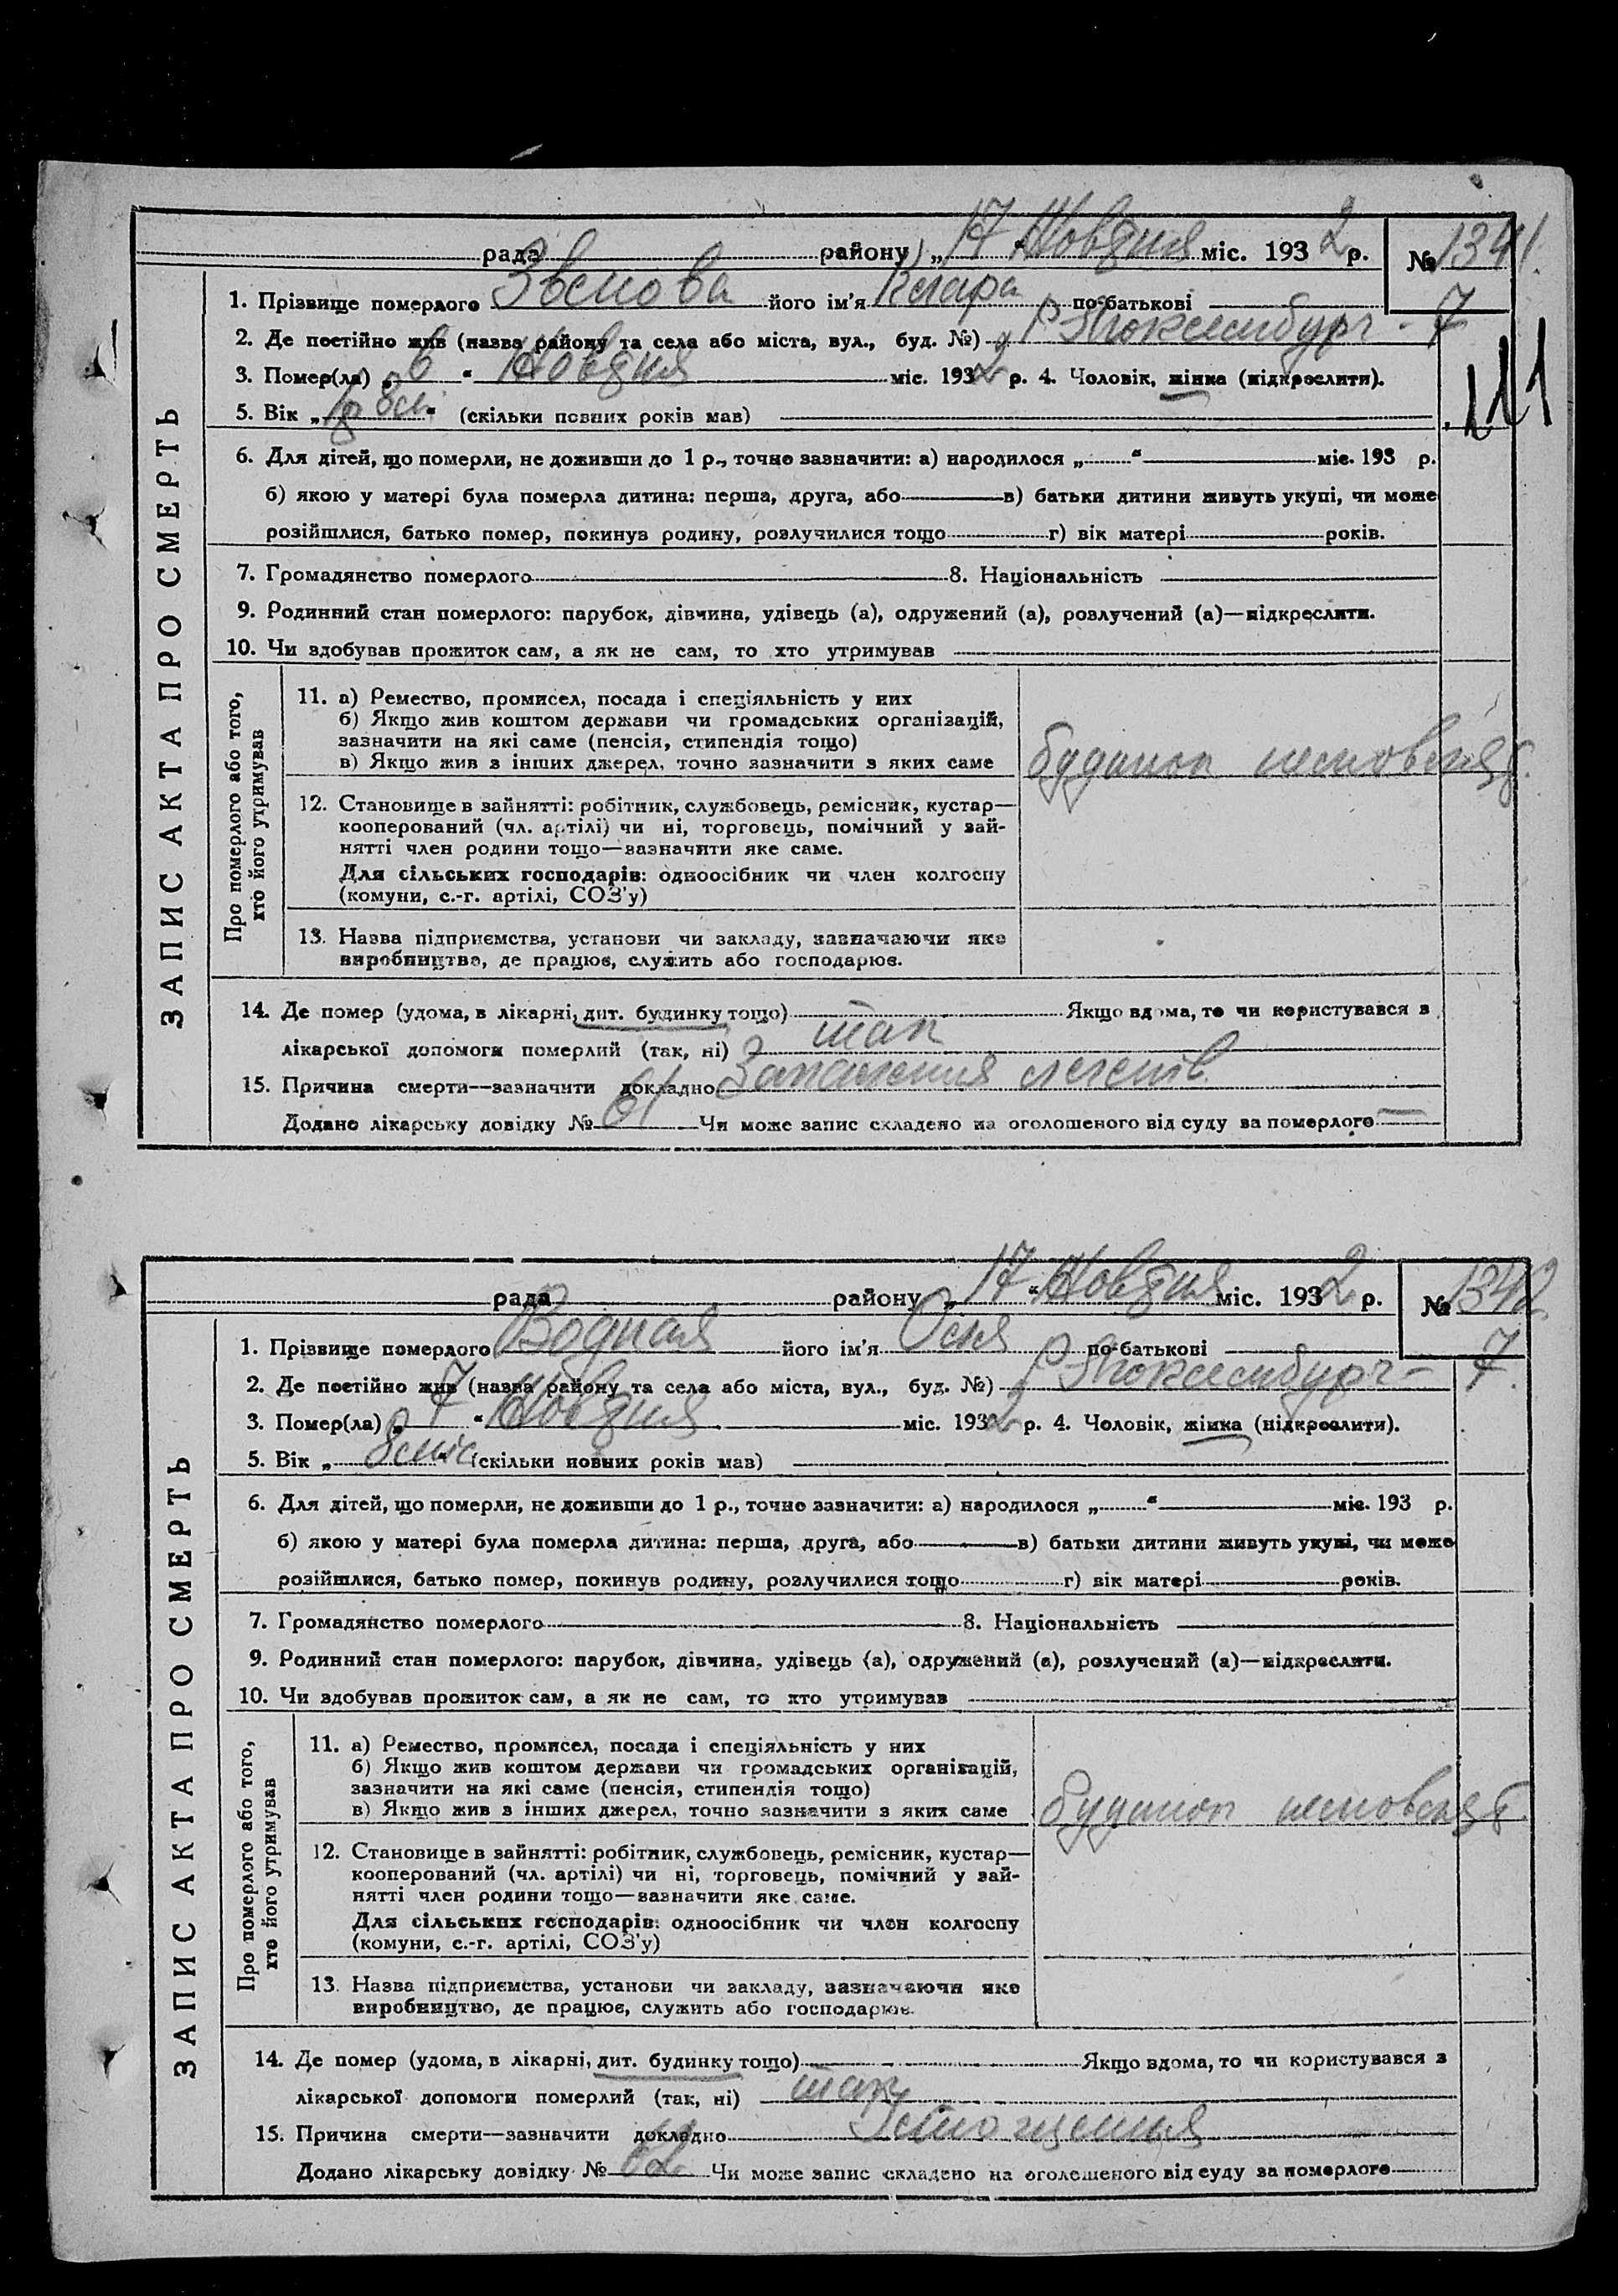 рада району „17 Жовтня міс. 1932 р. № 1341.
1. Прізвище померлого його ім'я Клара по-батькові 7
2. Де постійно жив (назва району та села або міста, вул., буд. №) Р Люксембург - 7
3. Помер(ла) „6 " Жовтня міс. 1932 р. 4. Чоловік, жінка (підкреслити).
5. Вік „ " (скільки повних років мав)
6. Для дітей, що померли, не доживши до 1 р., точно зазначити: а) народилося „ " міс. 193 р.
б) якою у матері була померла дитина: перша, друга, або в) батьки дитини живуть укупі, чи може
розійшлися, батько помер, покинув родину, розлучилися тощо г) вік матері років.
7. Громадянство померлого 8. Національність
9. Родинний стан померлого: парубок, дівчина, удівець (а), одружений (а), розлучений (а)—підкреслити.
10. Чи здобував прожиток сам, а як не сам, то хто утримував
ЗАПИС АКТА ПРО СМЕРТЬ
Про померлого або того,
хто його утримував
11. а) Ремество, промисел, посада і спеціяльність у них
б) Якщо жив коштом держави чи громадських організацій,
зазначити на які саме (пенсія, стипендія тощо)
в) Якщо жив з інших джерел, точно зазначити з яких саме
будинок немовлят.
12. Становище в зайнятті: робітник, службовець, ремісник, кустар—
кооперований (чл. артілі) чи ні, торговець, помічний у зай-
нятті член родини тощо—зазначити яке саме.
Для сільських господарів: одноосібник чи член колгоспу
(комуни, с.-г. артілі, СОЗ'у)
13. Назва підприємства, установи чи закладу, зазначаючи яке
виробництво, де працює, служить або господарює.
14. Де помер (удома, в лікарні, дит. будинку тощо) Якщо вдома, то чи користувався з
лікарської допомоги померлий (так, ні) так
15. Причина смерти—зазначити докладно Запалення легенів
Додано лікарську довідку № 61 Чи може запис складено на оголошеного від суду за померлого —
рада району „17 " Жовтня міс. 1932 р. № 1342
1. Прізвище померлого Водная його ім'я Осня по-батькові 7.
2. Де постійно жив (назва району та села або міста, вул., буд. №) Р Люксембург -
3. Помер(ла) „7 " Жовтня міс. 1932 р. 4. Чоловік, жінка (підкреслити).
5. Вік „ 8 міс " (скільки повних років мав)
6. Для дітей, що померли, не доживши до 1 р., точно зазначити: а) народилося „ " міс. 193 р.
б) якою у матері була померла дитина: перша, друга, або в) батьки дитини живуть укупі, чи може
розійшлися, батько помер, покинув родину, розлучилися тощо г) вік матері років.
7. Громадянство померлого 8. Національність
9. Родинний стан померлого: парубок, дівчина, удівець (а), одружений (а), розлучений (а)—підкреслити.
10. Чи здобував прожиток сам, а як не сам, то хто утримував
ЗАПИС АКТА ПРО СМЕРТЬ
Про померлого або того,
хто його утримував
11. а) Ремество, промисел, посада і спеціяльність у них
б) Якщо жив коштом держави чи громадських організацій,
зазначити на які саме (пенсія, стипендія тощо)
в) Якщо жив з інших джерел, точно зазначити з яких саме
будинок немовлят
12. Становище в зайнятті: робітник, службовець, ремісник, кустар—
кооперований (чл. артілі) чи ні, торговець, помічний у зай-
нятті член родини тощо—зазначити яке саме.
Для сільських господарів: одноосібник чи член колгоспу
(комуни, с.-г. артілі, СОЗ'у)
13. Назва підприємства, установи чи закладу, зазначаючи яке
виробництво, де працює, служить або господарює.
14. Де помер (удома, в лікарні, дит. будинку тощо) Якщо вдома, то чи користувався з
лікарської допомоги померлий (так, ні) так
15. Причина смерти—зазначити докладно Істощення
Додано лікарську довідку № 62 Чи може запис складено на оголошеного від суду за померлого